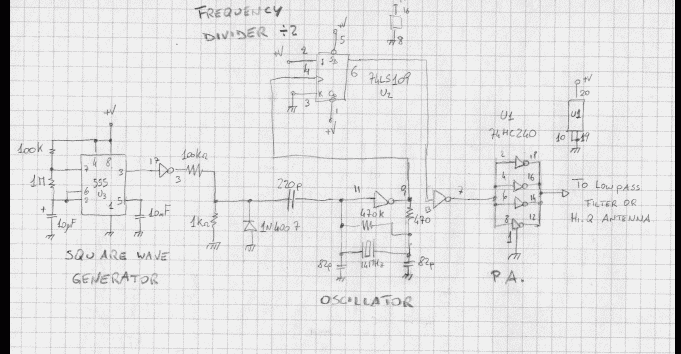 FREQUENCY
DIVIDER ÷2
+V
5
16
8
+V
2
4
3
1
6
J
K
74LS109
U2
+V
+V
100K
1M
10µF
7
6
2
4 8
555
U3
3
1
5
10nF
17
3
100KΩ
1KΩ
1N4007
220p
11
9
470K
470
82p
82p
13
7
U1
74HC240
2
18
4
16
6
14
8
12
1
+V
20
U1
10
19
TO LOW PASS
FILTER OR
Hi.Q ANTENNA
SQUARE WAVE
GENERATOR
OSCILLATOR
P.A.